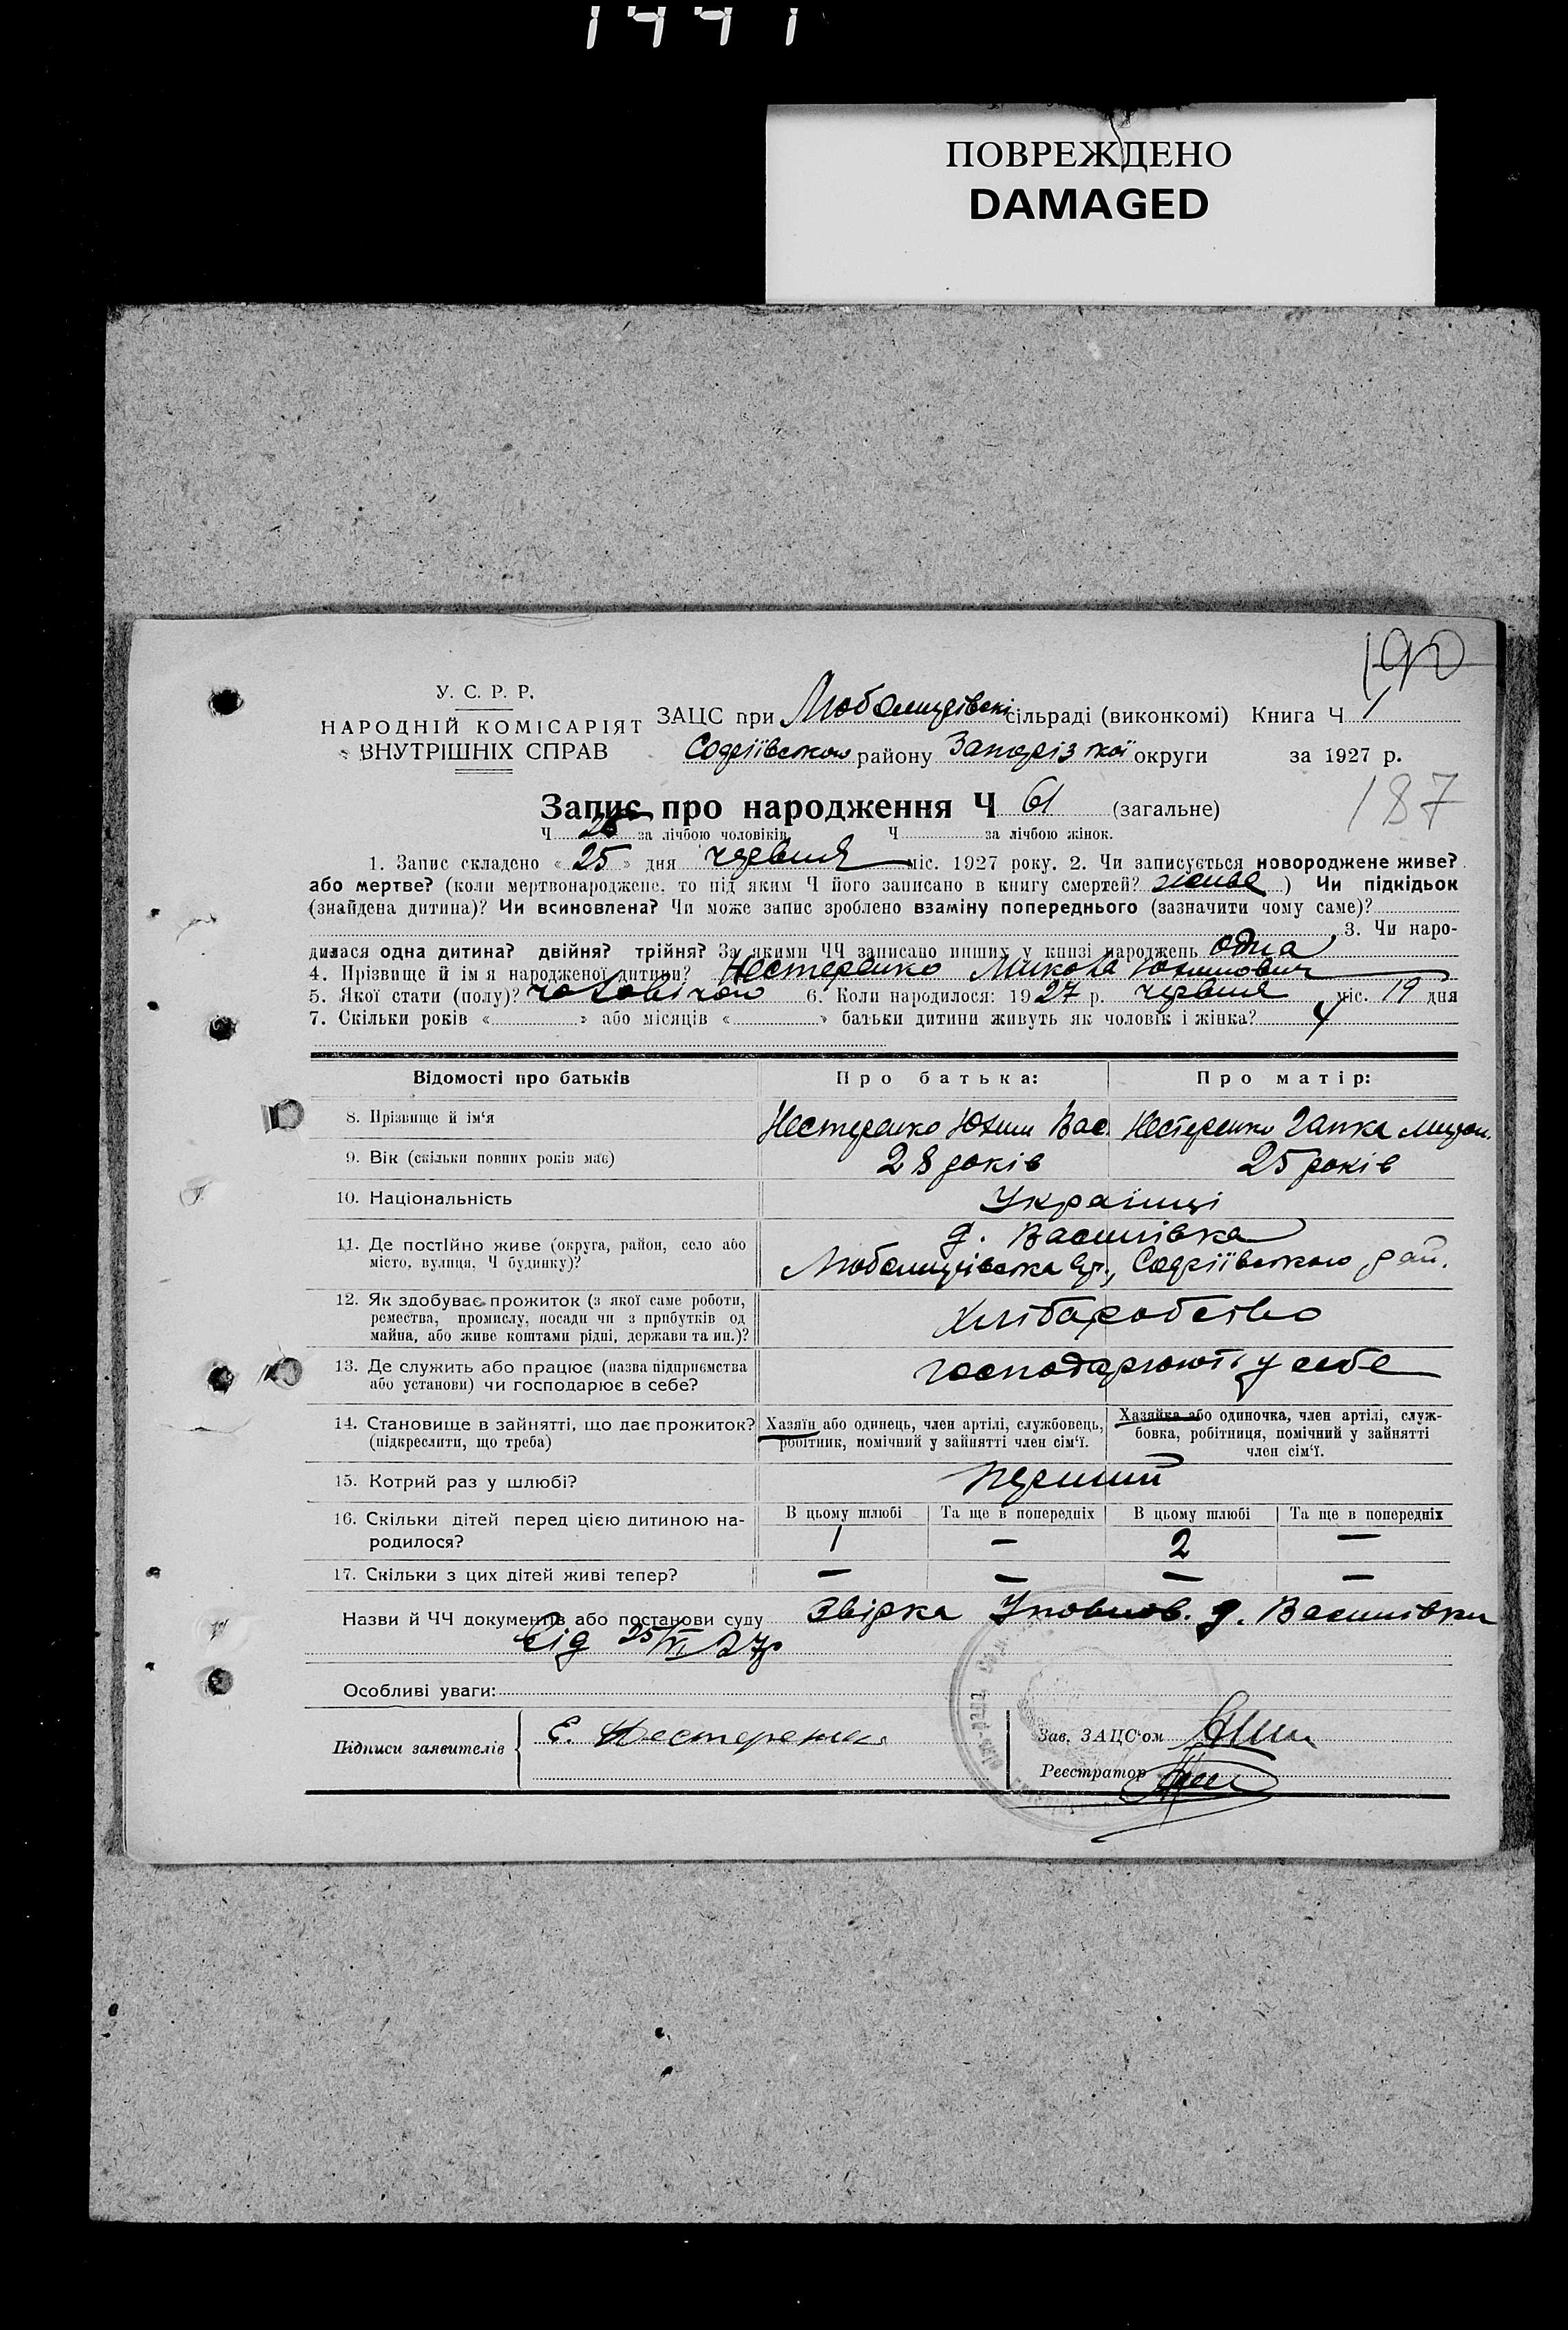 1441
ПОВРЕЖДЕНО
DAMAGED
190
У. С. Р. Р.
НАРОДНІЙ КОМІСАРІЯТ
ВНУТРІШНІХ СПРАВ
ЗАЦС при сільраді (виконкомі) Книга Ч 1
району округи за 1927 р.
187
Запис про народження Ч 61 (загальне)
Ч за лічбою чоловіків Ч за лічбою жінок.
1. Запис складено « 25 » дня червня міс. 1927 року. 2. Чи записується новороджене живе?
або мертве? (коли мертвонароджене, то під яким Ч його записано в книгу смертей? живе ) Чи підкідьок
(знайдена дитина)? Чи всиновлена? Чи може запис зроблено взаміну попереднього (зазначити чому саме)?
3. Чи наро-
дилася одна дитина? двійня? трійня? За якими ЧЧ записано инших у книзі народжень одна
4. Прізвище й імя народженої дитини? Нестеренко Микола Юхимович
5. Якої стати (полу)? 6. Коли народилося: 1927 р. червня міс. 19 дня
7. Скільки років « » або місяців « » батьки дитини живуть як чоловік і жінка? 4
Відомості про батьків Про батька: Про матір:
8. Прізвище й ім‘я Нестеренко Юхим Вас. Нестеренко Гапка
9. Вік (скільки повних років має) 28 років 25 років
10. Національність Українці
11. Де постійно живе (округа, район, село або
місто, вулиця, Ч будинку)?
д. Василівка
12. Як здобуває прожиток (з якої саме роботи,
ремества, промислу, посади чи з прибутків од
майна, або живе коштами рідні, держави та ин.)?
хліборобство
13. Де служить або працює (назва підприємства
або установи) чи господарює в себе?
господарюють у себе
14. Становище в зайнятті, що дає прожиток?
(підкреслити, що треба)
Хазяїн або одинець, член артілі, службовець,
робітник, помічний у зайнятті член сім‘ї.
Хазяйка або одиночка, член артілі, служ-
бовка, робітниця, помічний у зайнятті
член сім‘ї.
15. Котрий раз у шлюбі? перший
16. Скільки дітей перед цією дитиною на-
родилося?
В цьому шлюбі Та ще в попередніх В цьому шлюбі Та ще в попередніх
1 — 2 —
17. Скільки з цих дітей живі тепер? — — — —
Назви й ЧЧ документів або постанови суду Звірка Уповнов. д. Василівки
від 25/VI 27р
Особливі уваги:
Підписи заявителів Е. Нестеренко
Зав. ЗАЦС‘ом
Реєстратор